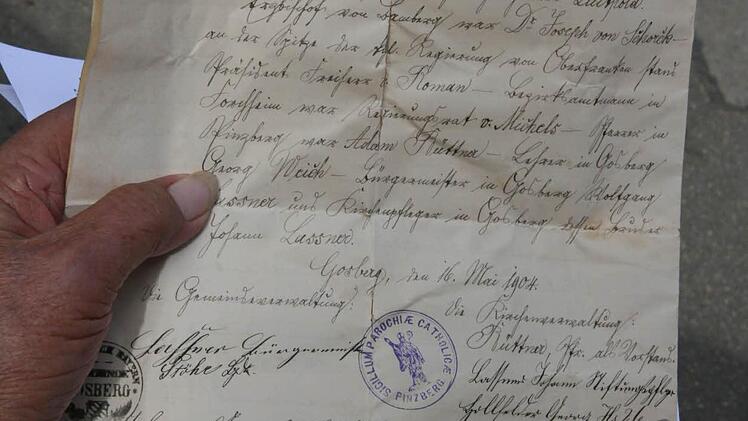 Luitpold.
Erzbischof von Bamberg war Dr Joseph von Schork –
an der Spitze der kgl. Regierung von Oberfranken stand
Präsident Freiherr v. Roman – Bezirksamtmann in
Forchheim war Regierungsrat v. Michels – Pfarrer in
Pinzberg war Adam Küttner – Lehrer in Gosberg
Georg Weich – Bürgermeister in Gosberg Wolfgang
Lassner und Kirchenpfleger in Gosberg dessen Bruder
Johann Lassner.
Gosberg, den 16. Mai 1904.
Die Gemeindeverwaltung:
Die Kirchenverwaltung:
Lassner Bürgermeister
Küttner, Pfr. als Vorstand.
Lassner Johann Stiftungspfleger
Georg
SIGILLUM PAROCHIÆ CATHOLICÆ
PINZBERG
BAYERN
GOSBERG